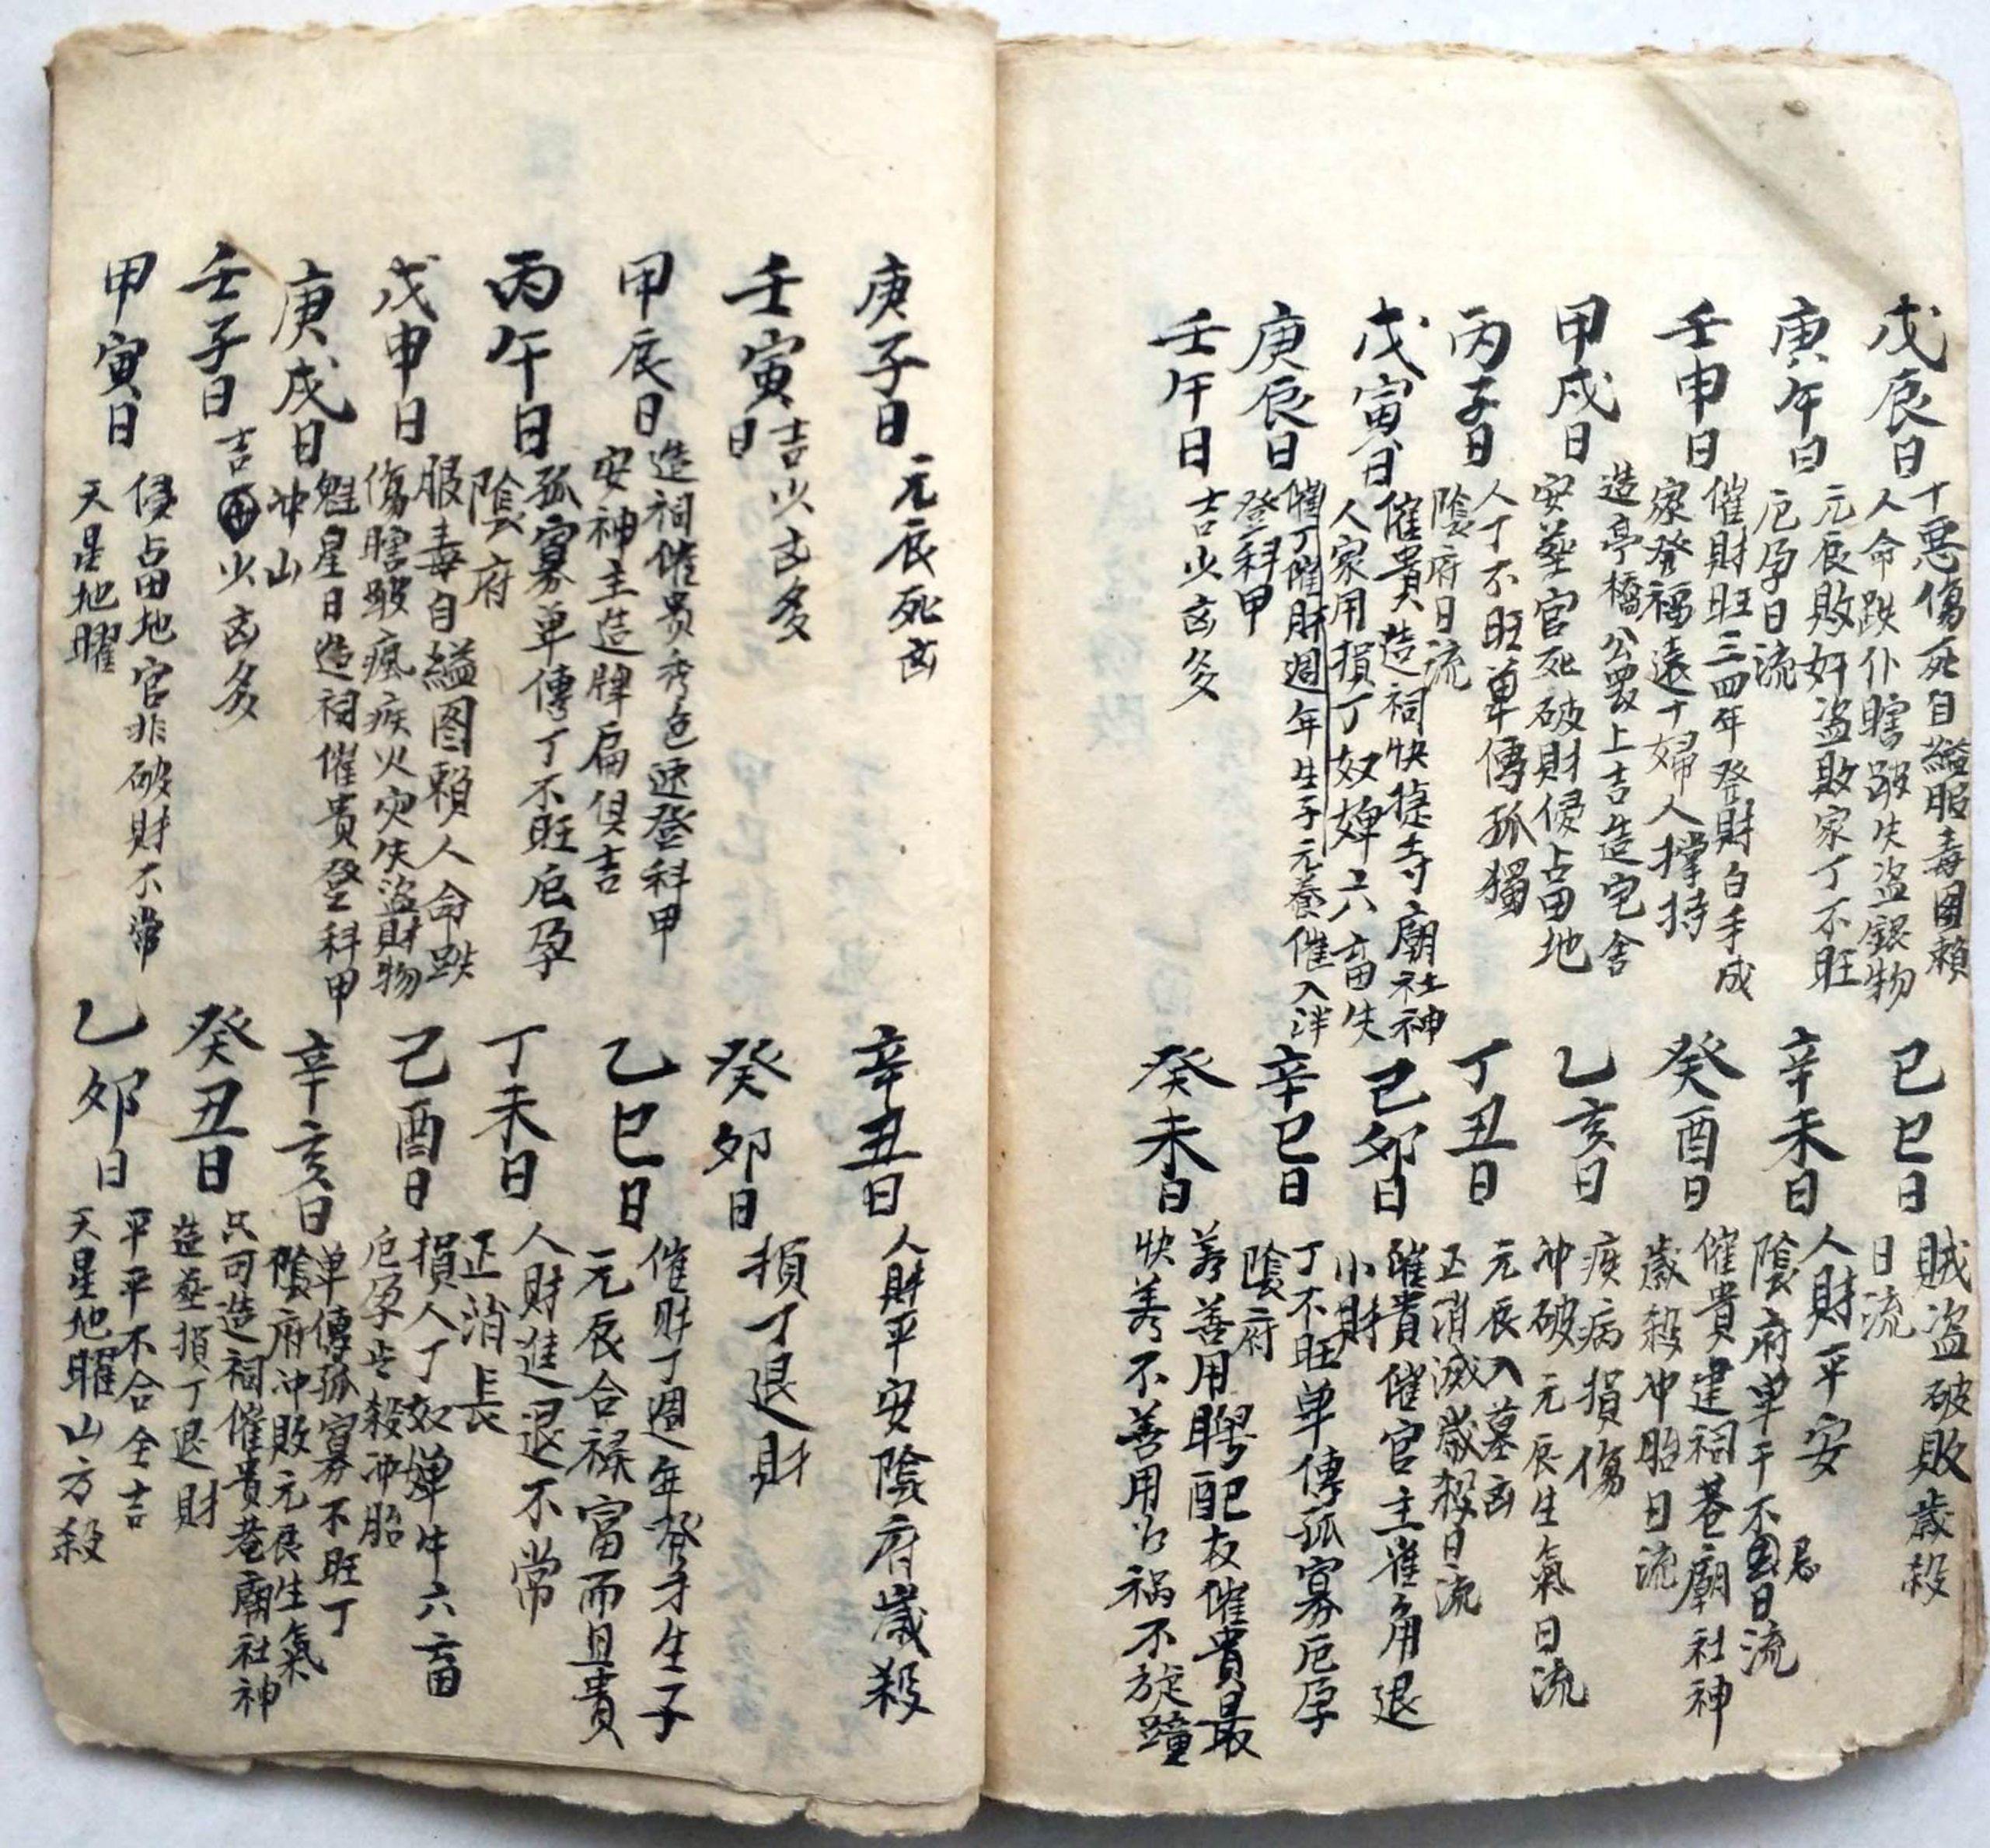 戊辰日
十惡傷死自縊服毒圖賴
人命跌仆瞎跛失盜銀物
庚午日
元辰敗奸盜敗家丁不旺
厄孕日流
壬申日
催財旺三四年登財白手成
家發福遠十婦人撑持
甲戌日
造亭橋公眾上吉造宅舍
安葬官死破財侵占田地
丙子日
人丁不旺單傳孤獨
陰府日流
戊寅日
催貴造祠快捷寺廟社神
人家用損丁奴婢六畜失
庚辰日
催丁催財週年生子元養催入泮
登科甲
壬午日
吉少凶多
己巳日
賊盜破敗歲殺
日流
辛未日
人財平安 忌
陰府單干不日流
癸酉日
催貴建祠菴廟社神
歲殺冲胎日流
乙亥日
疾病損傷
冲破元辰生氣日流
丁丑日
元辰入墓凶
正消滅歲殺日流
己卯日
催貴催官主雀角退
小財
辛巳日
丁不旺单傳孤寡厄孕
陰府
癸未日
善善用聘配友催貴最
快善不善用公禍不旋踵
庚子日
元辰死凶
壬寅日
吉少凶多
甲辰日
造祠催貴秀色速登科甲
安神主造牌扁俱吉
丙午日
孤寡单傳丁不旺厄孕
陰府
戊申日
服毒自縊图賴人命跌
傷瞎跛瘋疾火灾失盜財物
庚戌日
魁星日造祠催貴登科甲
冲山
壬子日
吉少凶多
甲寅日
侵占田地官非破財不常
天星地曜
辛丑日
人財平安陰府歲殺
癸卯日
損丁退財
乙巳日
催財丁週年發才生子
元辰合祿富而且貴
丁未日
人財進退不常
正消長
己酉日
損人丁奴婢牛六畜
厄孕歩殺冲胎
辛亥日
单傳孤寡不旺丁
陰府冲敗元辰生氣
癸丑日
只可造祠催貴菴廟社神
造葬損丁退財
乙卯日
平平不合全吉
天星地曜山方殺